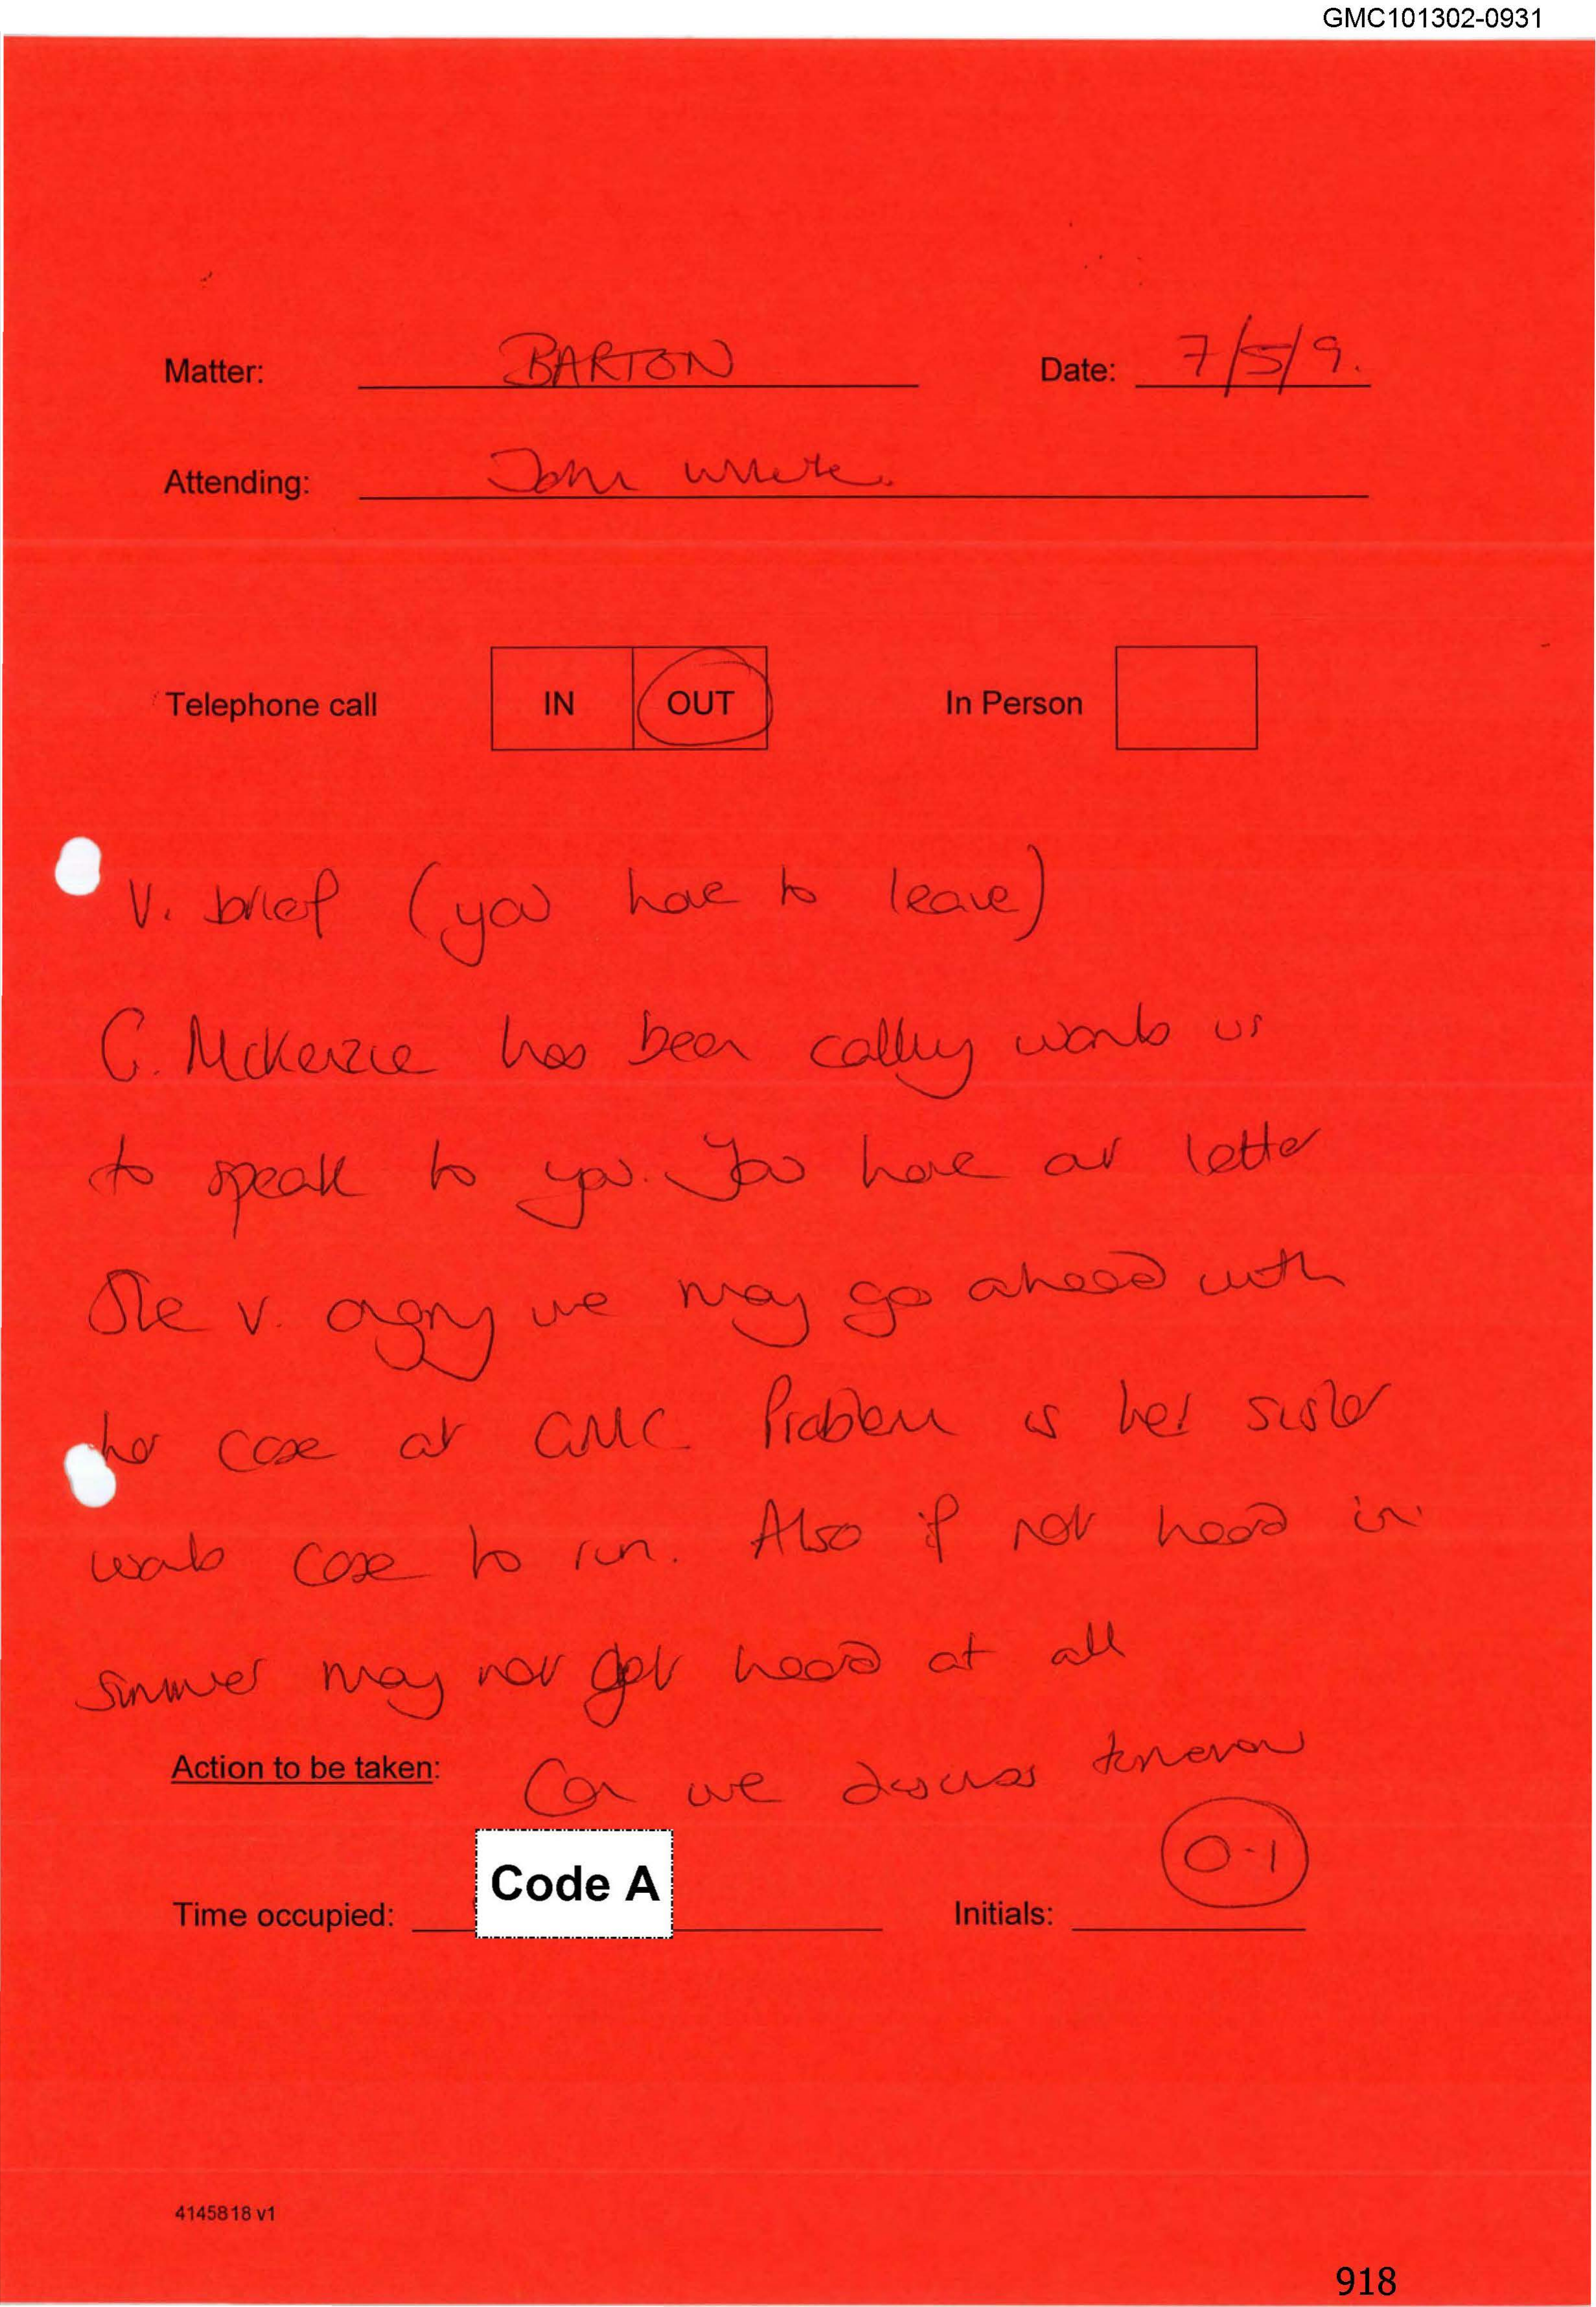 GMC101302-0931
Matter: BARTON Date: 7/5/9.
Attending: John White.
Telephone call IN OUT In Person
V. brief (you have to leave)
G. McKenzie has been calling wants us
to speak to you. You have our letter
She v. angry we may go ahead with
her case at GMC Problem is her sister
wants case to run. Also if not heard in
summer may not get heard at all
Action to be taken: Can we discuss tomorrow
Code A
0.1
Time occupied: Initials:
4145818 v1
918